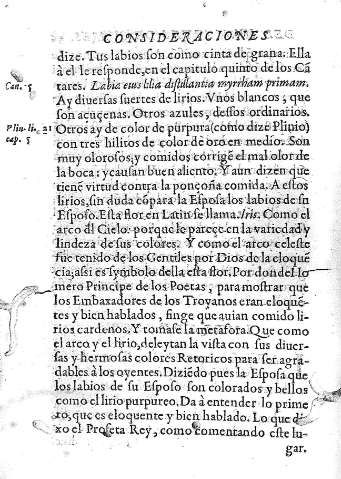 CONSIDERACIONES
dize. Tus labios son como cinta de grana. Ella
à el le responde, en el capitulo quinto de los Cã
Can. 5
tares. Labia eius lilia distillantia myrrham primam.
Ay diuersas suertes de lirios. Vnos blancos, que
son açuçenas. Otros azules, dessos ordinarios.
Plin. li. 21
Otros ay de color de purpura (como dize Plinio)
cap. 5
con tres hilitos de color de oro en medio. Son
muy olorosos, y comidos corrigẽ el mal olor de
la boca: y causan buen aliento. Y aun dizen que
tienẽ virtud contra la ponçoña comida. A estos
lirios, sin duda cõpara la Esposa los labios de su
Esposo. Esta flor en Latin se llama. Iris. Como el
arco dl Cielo: porque le pareçe en la variedad y
lindeza de sus colores. Y como el arco celeste
fue tenido de los Gentiles por Dios de la eloquẽ
cia; asi es symbolo della esta flor. Por donde
mero Principe de los Poetas, para mostrar que
los Embaxadores de los Troyanos eran eloquẽ
tes y bien hablados, finge que auian comido li
rios cardenos. Y tomase la metafora. Que como
el arco y el lirio, deleytan la vista con sus diuer
sas y hermosas colores Retoricos para ser agra
dables à los oyentes. Diziẽdo pues la Esposa que
los labios de su Esposo son colorados y bellos
como el lirio purpureo. Da à entender lo prime
ro, que es eloquente y bien hablado. Lo que di
xo el Profeta Rey, como comentando este lu
gar.